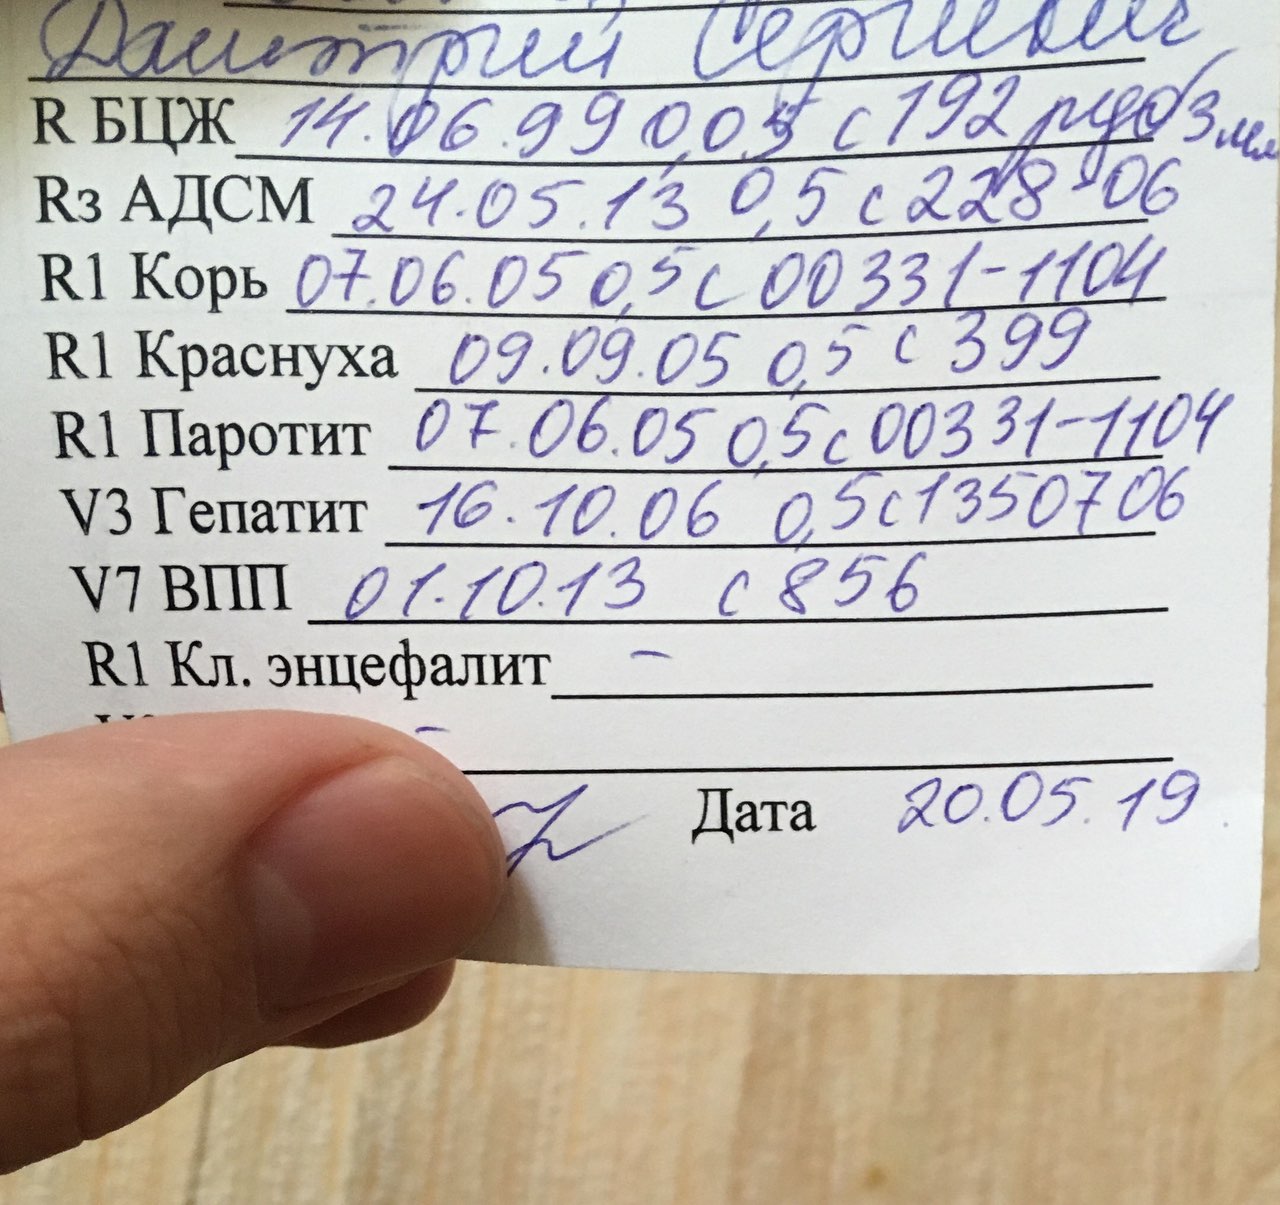 Дмитрий Сергеевич
R БЦЖ 14.06.99 0,05 с 192 рубч 3 мм
Rз АДСМ 24.05.13 0,5 с 228-06
R1 Корь 07.06.05 0,5 с 00331-1104
R1 Краснуха 09.09.05 0,5 с 399
R1 Паротит 07.06.05 0,5 с 00331-1104
V3 Гепатит 16.10.06 0,5 с 1350706
V7 ВПП 01.10.13 с 856
R1 Кл. энцефалит –
–
Дата 20.05.19